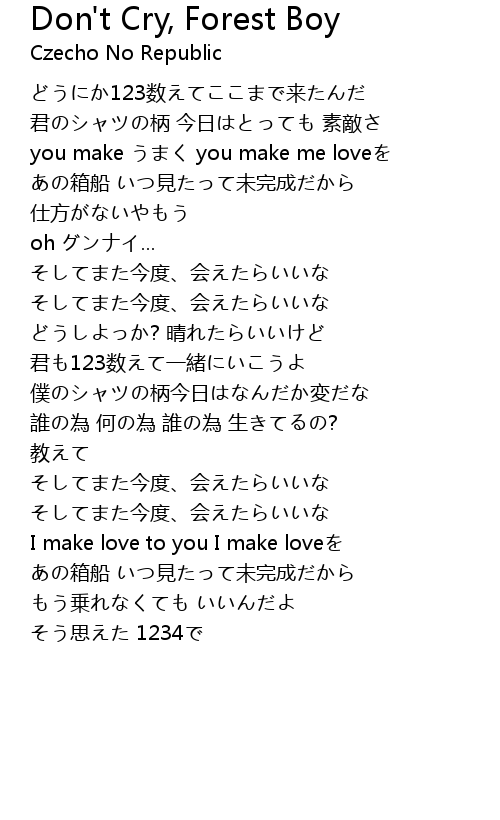 Don't Cry, Forest Boy
Czecho No Republic
どうにか123数えてここまで来たんだ
君のシャツの柄 今日はとっても 素敵さ
you make うまく you make me loveを
あの箱船 いつ見たって未完成だから
仕方がないやもう
oh グンナイ...
そしてまた今度、会えたらいいな
そしてまた今度、会えたらいいな
どうしよっか? 晴れたらいいけど
君も123数えて一緒にいこうよ
僕のシャツの柄今日はなんだか変だな
誰の為 何の為 誰の為 生きてるの?
教えて
そしてまた今度、会えたらいいな
そしてまた今度、会えたらいいな
I make love to you I make loveを
あの箱船 いつ見たって未完成だから
もう乗れなくても いいんだよ
そう思えた 1234で